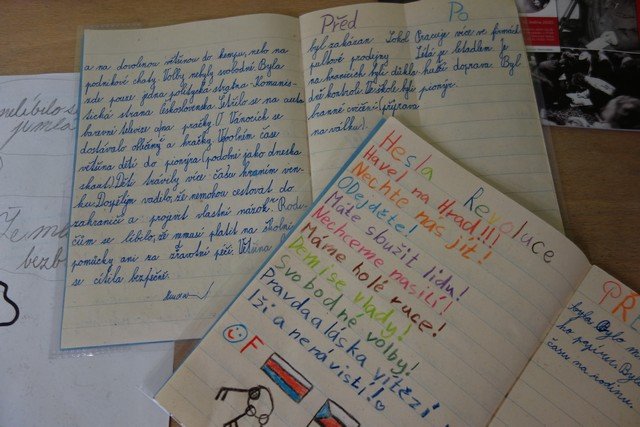 Před
Po
a na dovolenou většinou do kempu, nebo na
podnikové chaty. Volby nebyly svobodné. Byla
zde pouze jedna politycká strana - Komunis-
tická strana československa. Letělo se na
barevné televize dna pračky. O Vánocích se
dostávalo oblečný a hračky. Volném čase
většina dětí do pionýra (podobní jako dneska
skaut). Děti trávily více času hraním ven-
ku. Dospělým vadilo, že nemohou cestovat do
zahraničí a projevit vlastní názor. Rodi-
čům se líbilo, že nemusí platit na školní
pomůcky ani za zdravotní péči. Většina
se cítila bezpečně.
byl zakázan. Sokol. Pracuje více ve firmách
pultové prodejny. Létá je letadlem. Je
na hranicích byli důkla- hustší doprava. Byl
dné kontroli. Ve škole byli pionýr.
branné cvičení (příprava
na válku).
Hesla Revoluce
Havel na Hrad!!!
Nechte nás jít!
Odejděte!
Máte sloužit lidu!
Nechceme nasilí!
Máme holé ruce!
Demise vlády!
Svobodné volby!
Pravda a láska vítězí
lží a nenávistí!
OF
PR
bylo. Bylo
ho popínu. Byl
času na rodinu.
nelíbilo s
jimla
Že m
bezb